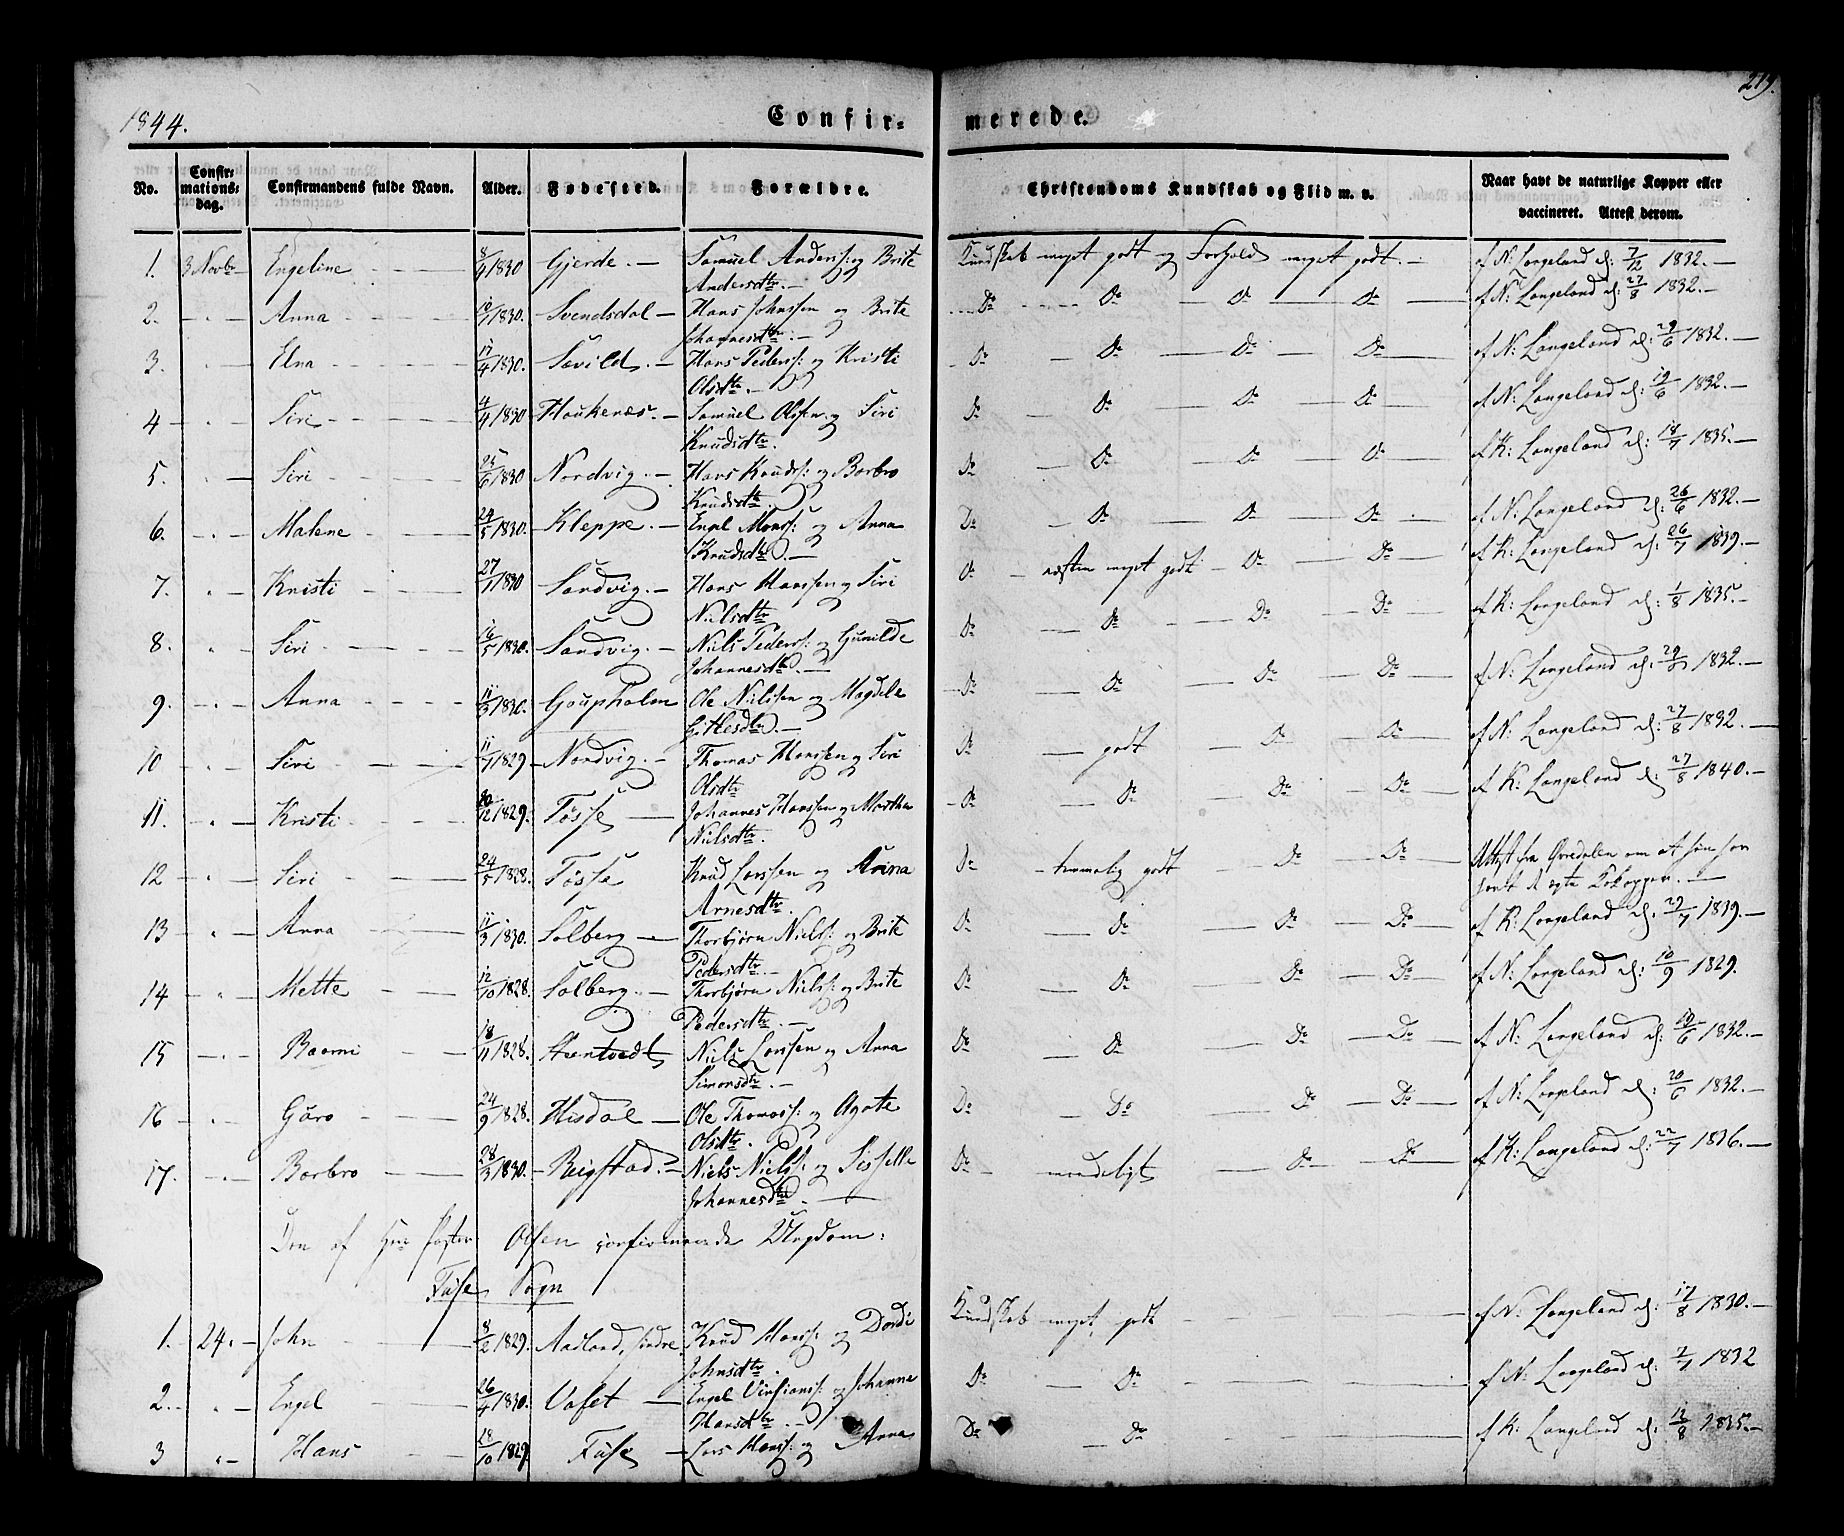 1844.
Confir-
merede.
219.
No.
Confir-
mations-
dag.
Confirmandens fulde Navn.
Alder.
Fødested.
Forældre.
Christendoms Kundskab og Flid m. v.
Naar havt de naturlige Kopper eller
vaccineret. Attest derom.
1. 3 Novbr Engeline 8/4 1830 Gjerde. Samuel Anders: og Brite Kundskab meget godt og Forhold meget godt. af N: Langeland d: 7/12 1832.
Andersdtr.
2. " Anna 1830. Svendsdal Hans Johnssen og Brite Do Do Do Do af N: Langeland d: 27/8 1832.
Johannesdtr.
3. " Elna 17/4 1830. Sævild. Hans Peders: og Kristi Do Do Do Do af N: Langeland d: 29/6 1832.
Olsdtr.
4 " Siri 4/4 1830 Haukenæs. Samuel Olssen og Siri Do Do Do Do af N: Langeland d: 19/6 1832.
Knudsdtr.
5. " Siri 25/6 1830 Nordvig. Hans Knuds: og Barbro Do Do Do Do af K: Langeland d: 18/7 1835.
Knudsdtr.
6. " Malene 24/5 1830. Kleppe. Engel Mons: og Anna Do Do Do Do af N: Langeland d: 26/6 1832.
Knudsdtr.
7. " Kristi 27/1 1830 Sandvig. Hans Hanssen og Siri Do næsten meget godt Do Do af K: Langeland d: 26/7 1839.
Nielsdtr
8. " Siri 16/5 1830. Sandvig. Niels Peders: og Gunilde Do Do Do Do af K: Langeland d: 1/8 1835.
Johannesdtr.
9. " Anna 11/3 1830. Goupholm Ole Nielssen og Magdele Do Do Do Do af N: Langeland d: 1832.
Gitlesdtr.
10 " Siri 11/1 1829 Nordvig. Thomas Hanssen og Siri Do godt Do Do af N: Langeland d: 27/8 1832.
Olsdtr
11. " Kristi 1829. Tøsse Johannes Hanssen og Martha Do Do Do Do af K: Langeland d: 27/8 1840.
Nielsdtr.
12 " Siri 24/5 1828. Tøsse Knud Larssen og Anna Do temmelig godt Do Do Attest fra Øvredalen om at hun har
Arnesdtr. havt de ægte Kokopper.
13 " Anna 11/3 1830. Solberg Thorbjørn Niels: og Brite Do Do Do Do af K: Langeland d. 29/7 1839.
Pedersdtr.
14 " Mette 12/10 1828. Solberg. Thorbjørn Niels: og Brite Do Do Do Do af N: Langeland d: 10/9 1829.
Pedersdtr.
15 " 18/11 1828. Niels Larssen og Anna Do Do Do Do af N: Langeland d: 19/6 1832.
Simonsdtr.
16 " Guro 24/9 1828. Husdal Ole Thomass: og Agate Do Do Do Do af N: Langeland d: 20/6 1832.
Olsdtr.
17. " Barbro 28/3 1830. Reigstad. Niels Niels: og Sisselle Do maadeligt Do Do af K: Langeland d: 22/7 1836.
Johannesdtr.
Den af Hr. Pastor Olsen confirmerede Ungdom:
Fuse Sogn
1. 24. John 8/2 1829. Aadland, søndre. Knud Hanss: og Dordi Kundskab meget godt af N: Langeland d: 17/8 1830.
Johnsdtr.
2. " Engel 26/4 1830. Vafet Engel Vinsians: og Johanna Do Do af N: Langeland d: 1832
Hansdtr.
3 " Hans 28/10 1829 Fuse Lars Hanss: og Anna Do Do af K: Langeland d: 12/8 1835.